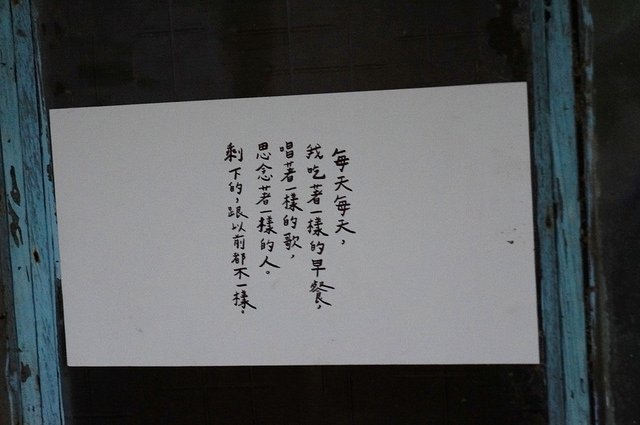 每天每天，
我吃著一樣的早餐，
唱著一樣的歌，
思念著一樣的人。
剩下的，跟以前都不一樣。